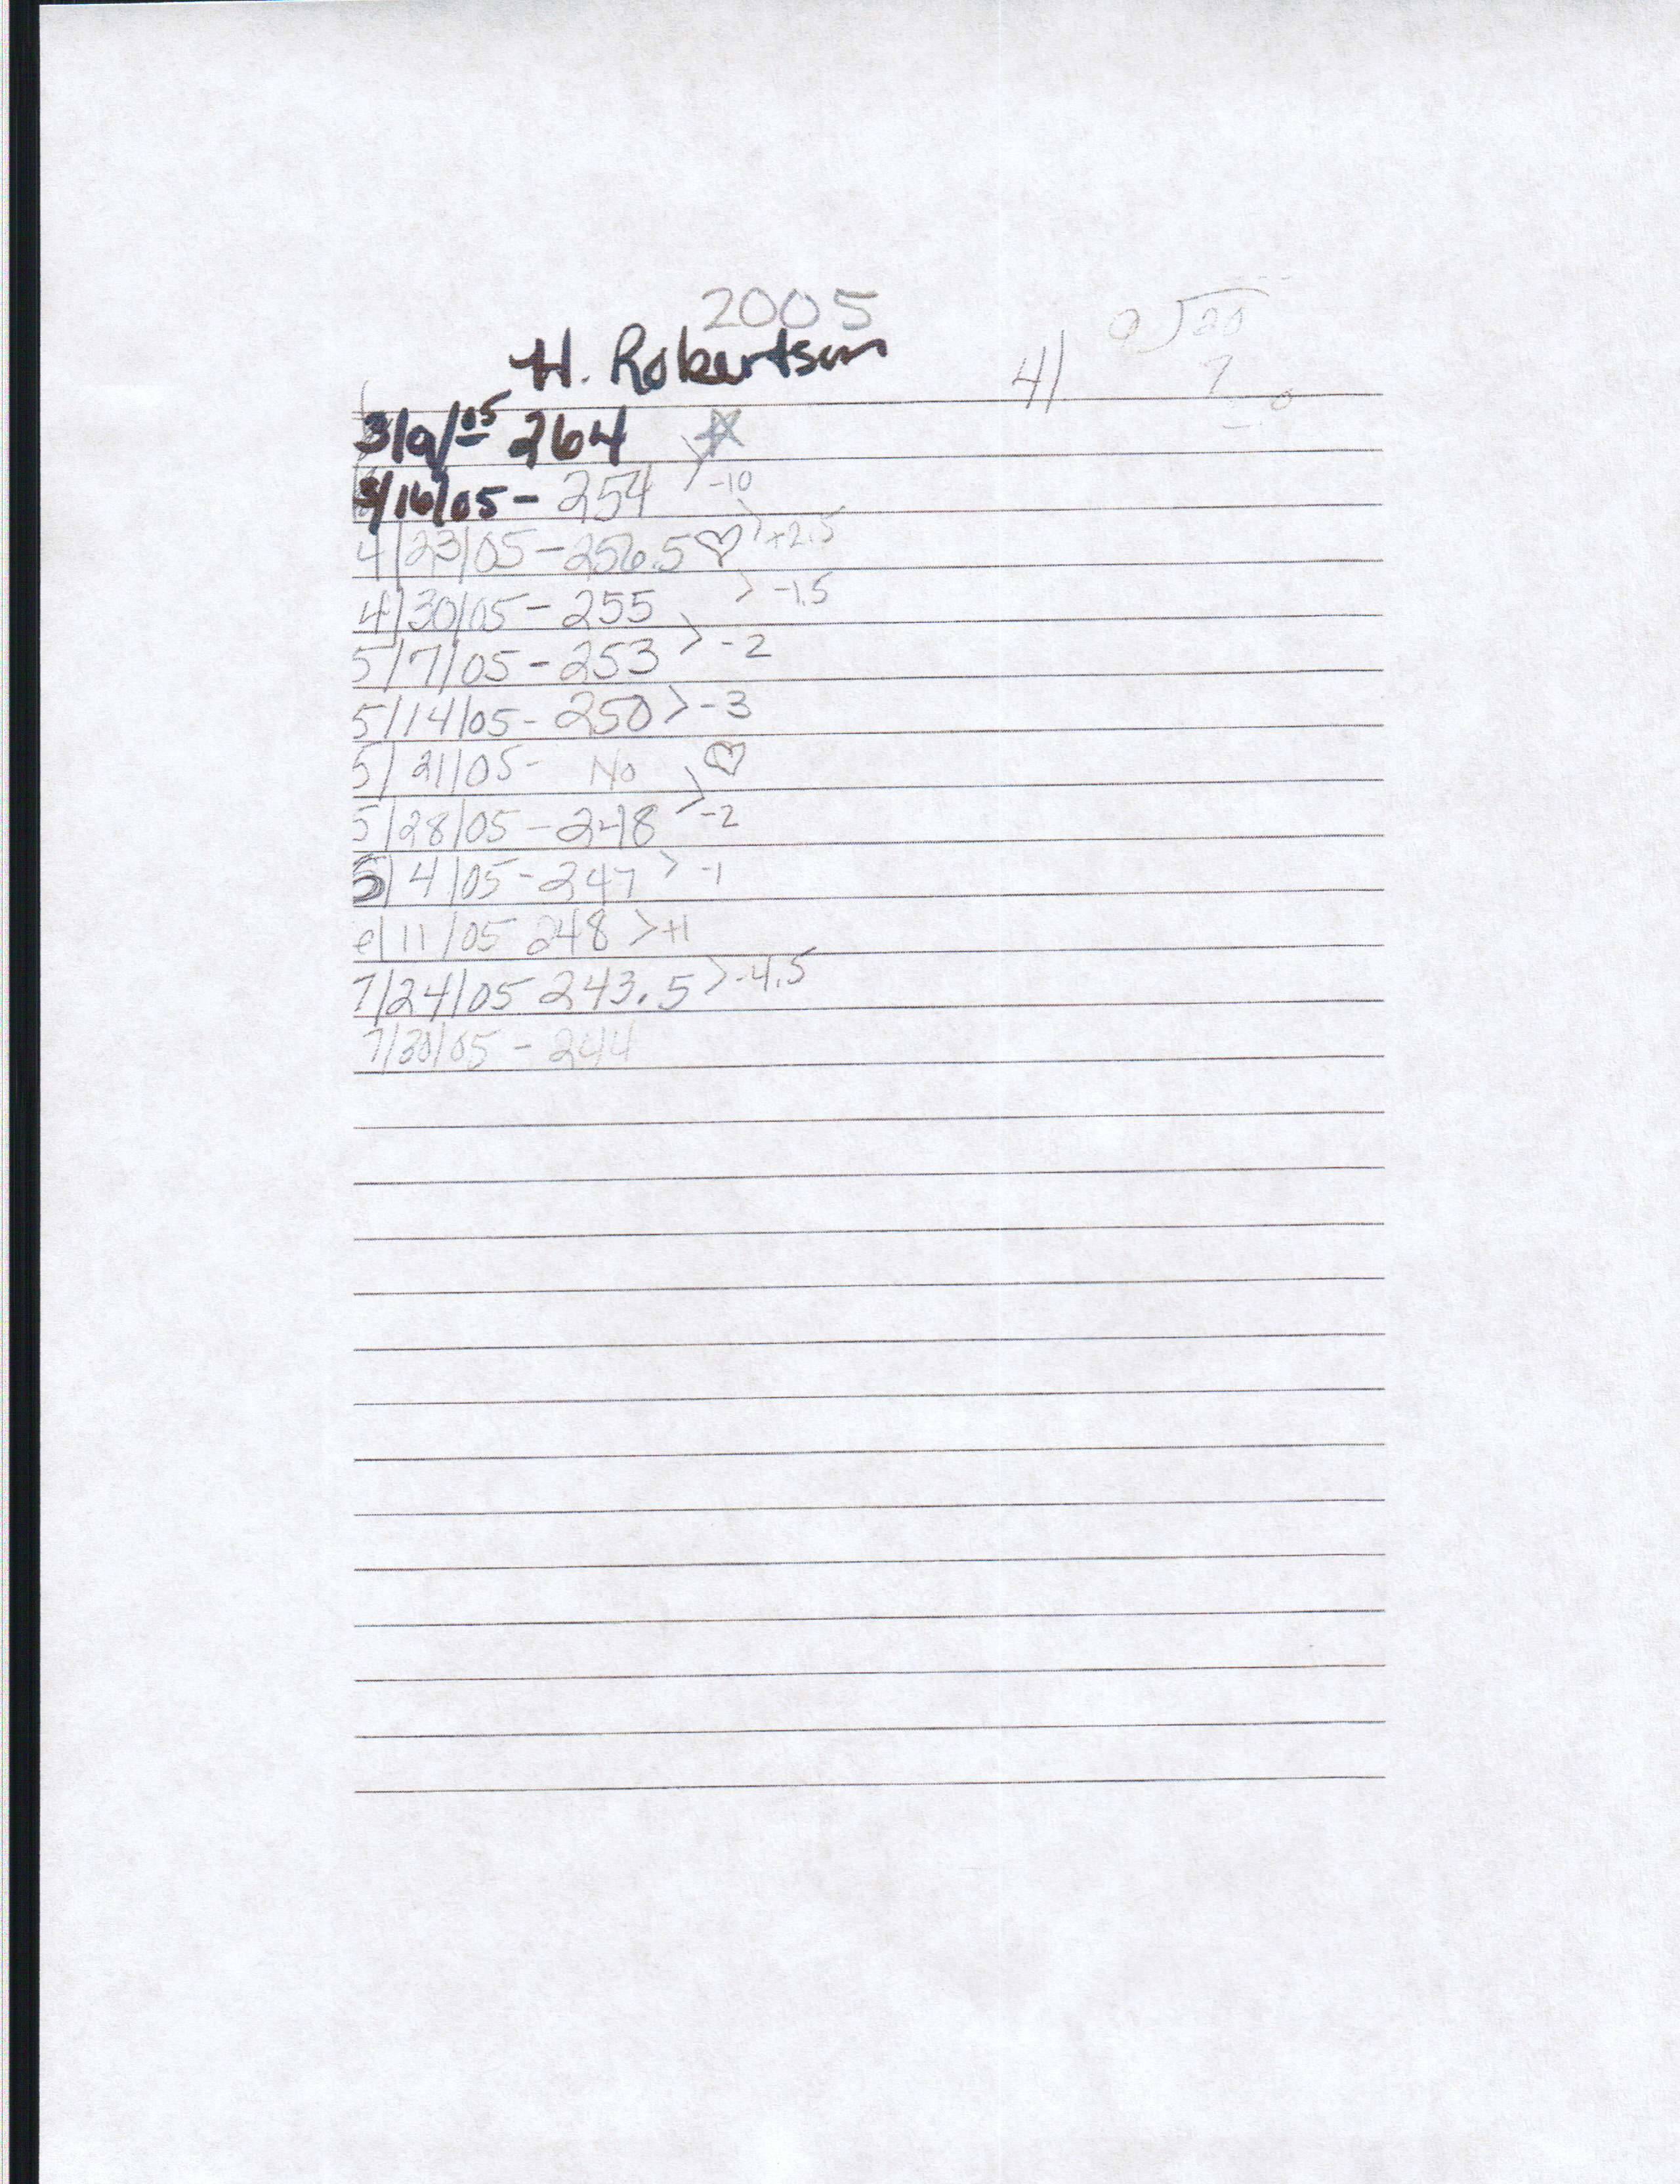 2005
H. Robertson
3/9/05 264 ☆
3/16/05 - 254 > -10
4/23/05 - 256.5 ♡ > +2.5
4/30/05 - 255 > -1.5
5/7/05 - 253 > -2
5/14/05 - 250 > -3
5/21/05 - No ♡
5/28/05 - 248 > -2
6/4/05 - 247 > -1
6/11/05 248 > +1
7/24/05 243.5 > -4.5
7/30/05 - 244